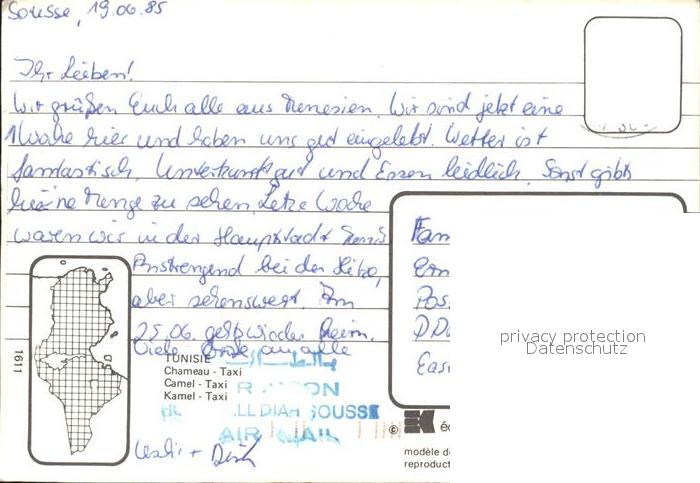 Sousse, 19.06.85
Ihr Lieben!
Wir grüßen Euch alle aus Tunesien. Wir sind jetzt eine
1 Woche hier und haben uns gut eingelebt. Wetter ist
fantastisch. Unterkunft gut und Essen leidlich. Sonst gibts
hier ne Menge zu sehen. Letzte Woche
waren wir in der Hauptstadt Tunis
Anstrengend bei der Hitze,
aber sehenswert. Am
25.06. geht's wieder heim.
Viele Grüße an alle
Fam
Pos
DD
East
privacy protection
Datenschutz
1611
TUNISIE
Chameau - Taxi
Camel - Taxi
Kamel - Taxi
SOUSSE
AIR MAIL
+ Dirk
© éc
modèle d
reproduct